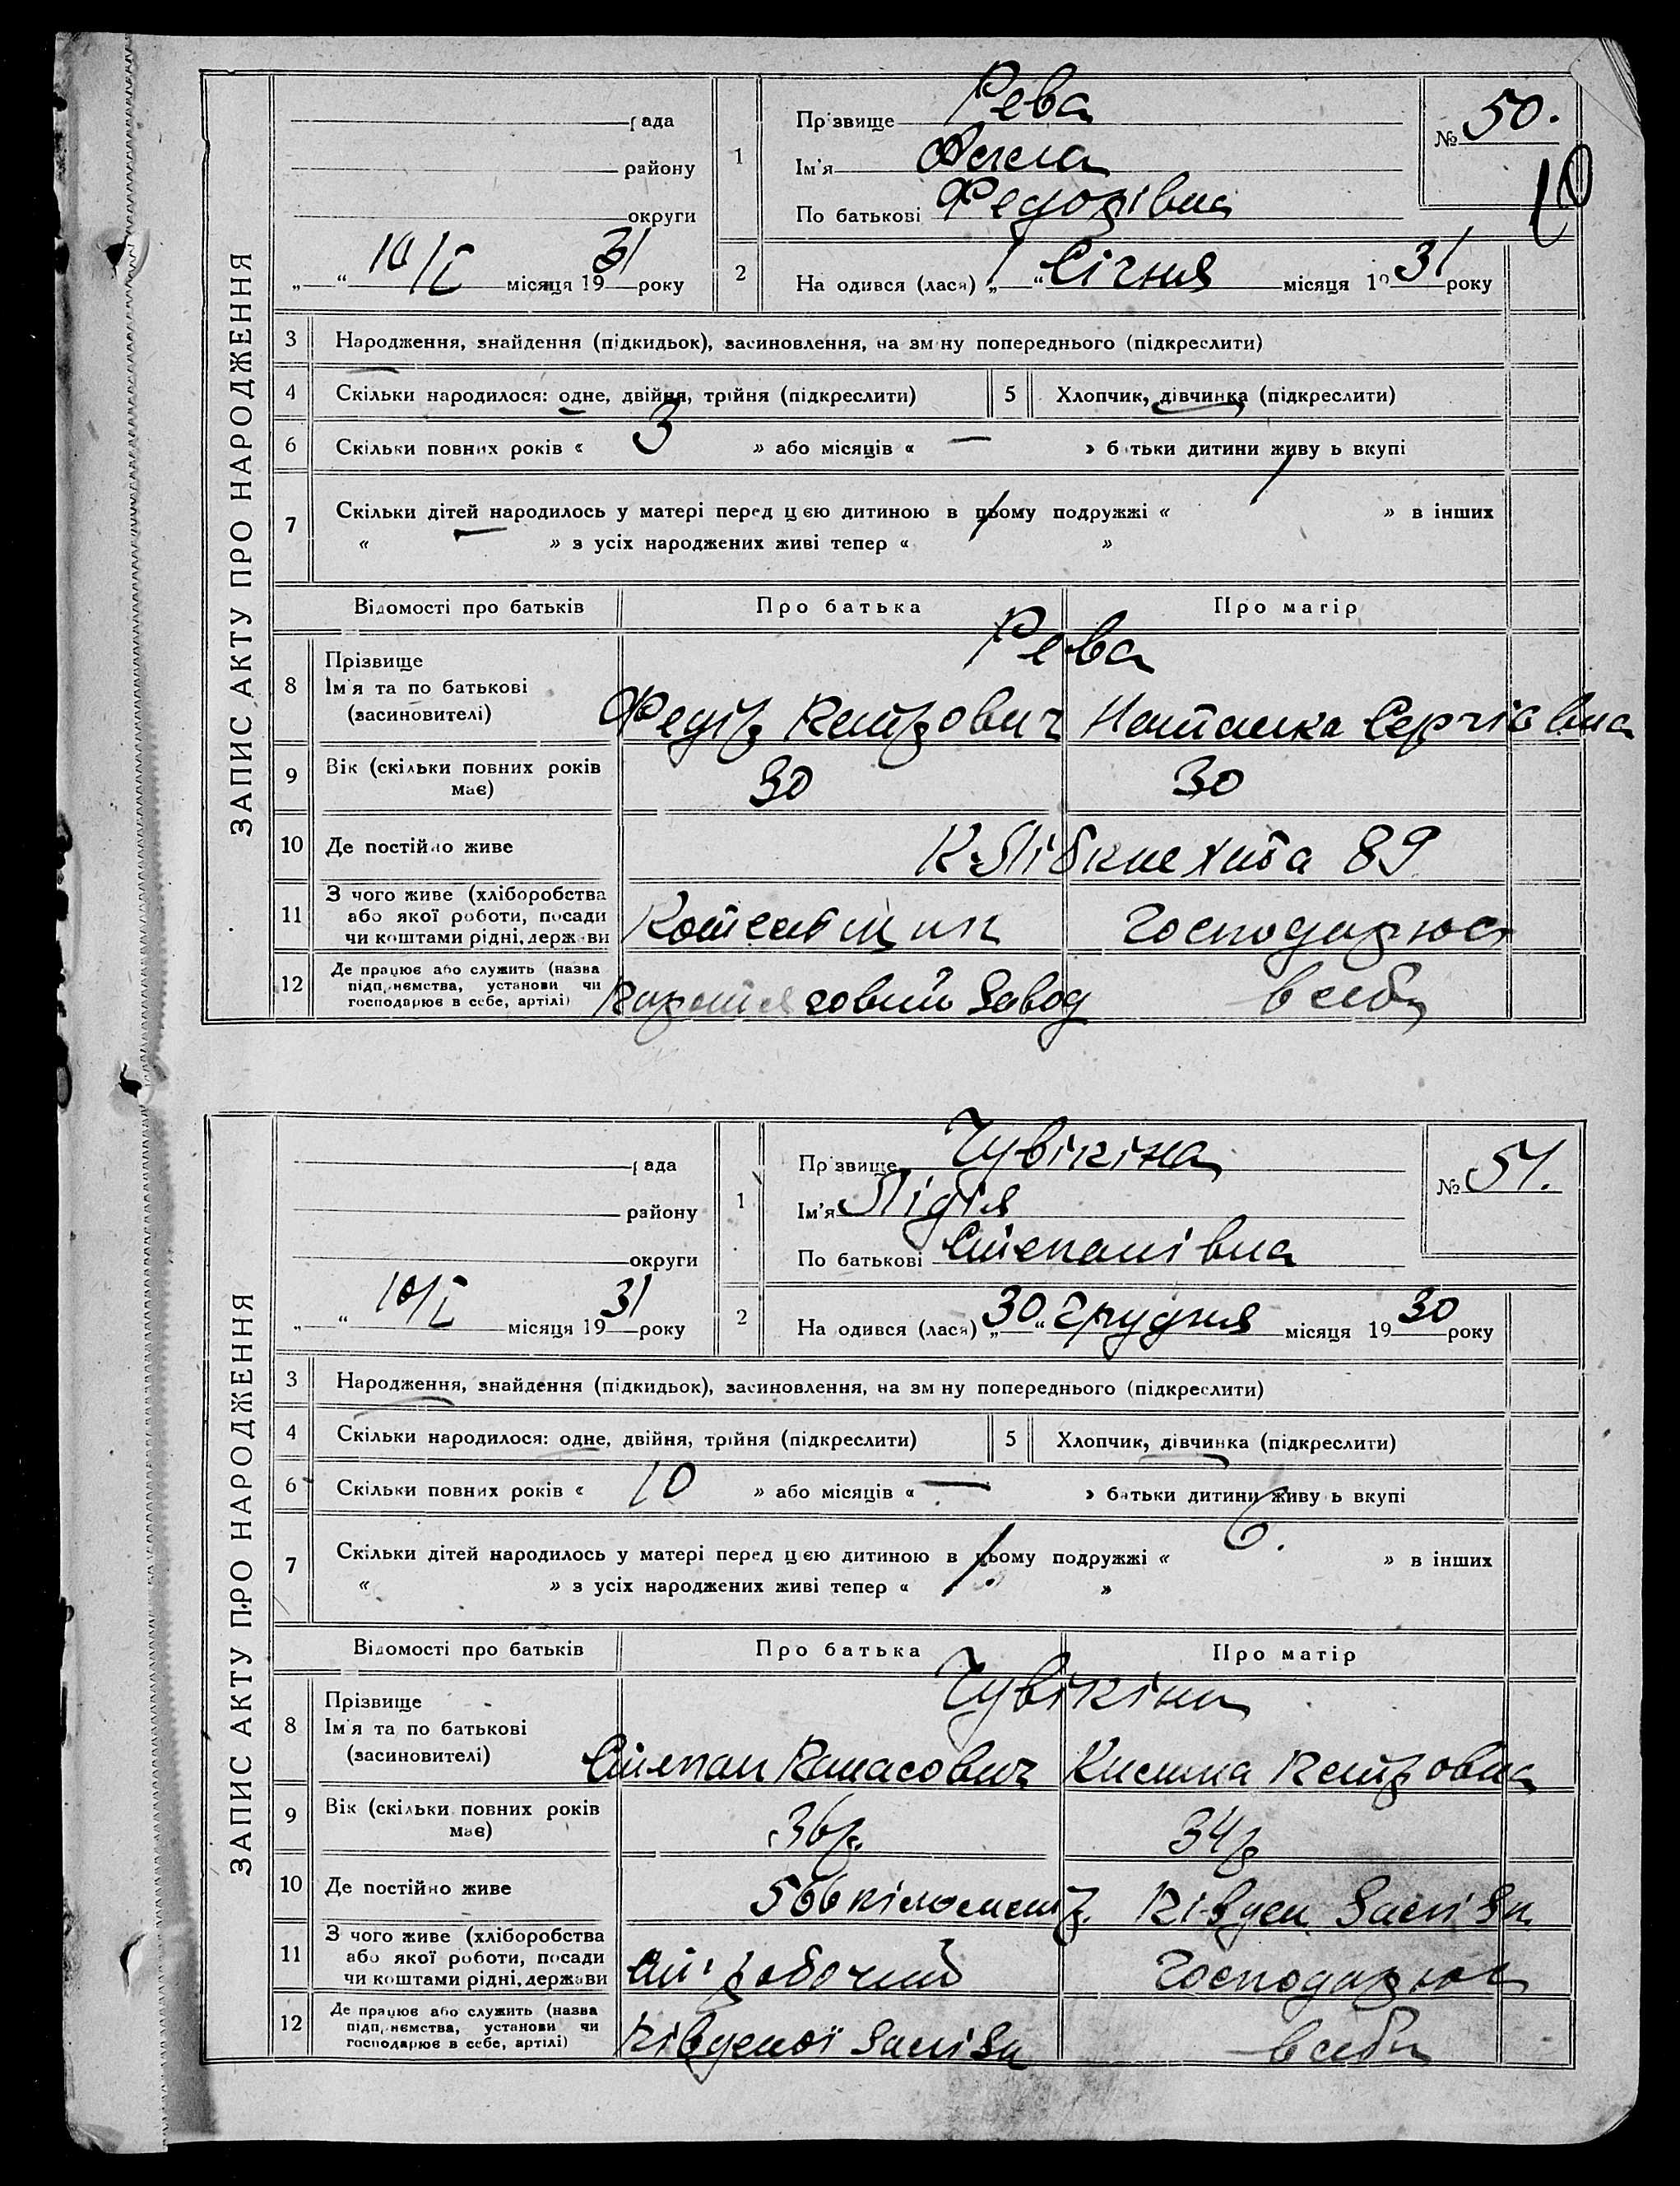 ЗАПИС АКТУ ПРО НАРОДЖЕННЯ
рада
району
округи
10/I місяця 1931 року
1
Прізвище Рева
Ім'я
По батькові Федорівна
№ 50.
10
2
На одився (лася) „1“ Січня місяця 1931 року
3 Народження, знайдення (підкидьок), засиновлення, на зм ну попереднього (підкреслити)
4 Скільки народилося: одне, двійня, трійня (підкреслити)
5 Хлопчик, дівчинка (підкреслити)
6 Скільки повних років « 3 » або місяців « — » батьки дитини живу ь вкупі
7 Скільки дітей народилось у матері перед цією дитиною в цьому подружжі « 1 » в інших
« — » з усіх народжених живі тепер « 1 »
Відомості про батьків Про батька Про матір
8 Прізвище
Ім'я та по батькові
(засиновителі)
Рева
Федір Петрович Наталка Сергіівна
9 Вік (скільки повних років
має)
30 30
10 Де постійно живе К. Лібкнехта 89
11 З чого живе (хліборобства
або якої роботи, посади
чи коштами рідні, держави
Господарює
12 Де працює або служить (назва
підприємства, установи чи
господарює в себе, артілі)
завод в себе
ЗАПИС АКТУ ПРО НАРОДЖЕННЯ
рада
району
округи
10/I місяця 1931 року
1
Прізвище Чувікіна
Ім'я Лідія
По батькові Степанівна
№ 51.
2
На одився (лася) „30“ Грудня місяця 1930 року
3 Народження, знайдення (підкидьок), засиновлення, на зм ну попереднього (підкреслити)
4 Скільки народилося: одне, двійня, трійня (підкреслити)
5 Хлопчик, дівчинка (підкреслити)
6 Скільки повних років « 10 » або місяців « — » батьки дитини живу ь вкупі
7 Скільки дітей народилось у матері перед цією дитиною в цьому подружжі « 6. » в інших
« » з усіх народжених живі тепер « 1. »
Відомості про батьків Про батька Про матір
8 Прізвище
Ім'я та по батькові
(засиновителі)
Чувікіни
Степан Панасович Петровна
9 Вік (скільки повних років
має)
36р. 34р
10 Де постійно живе 566 кілометр. Півден Залізн
11 З чого живе (хліборобства
або якої роботи, посади
чи коштами рідні, держави
робочий Господарює
12 Де працює або служить (назва
підприємства, установи чи
господарює в себе, артілі)
Південої Залізн в себе